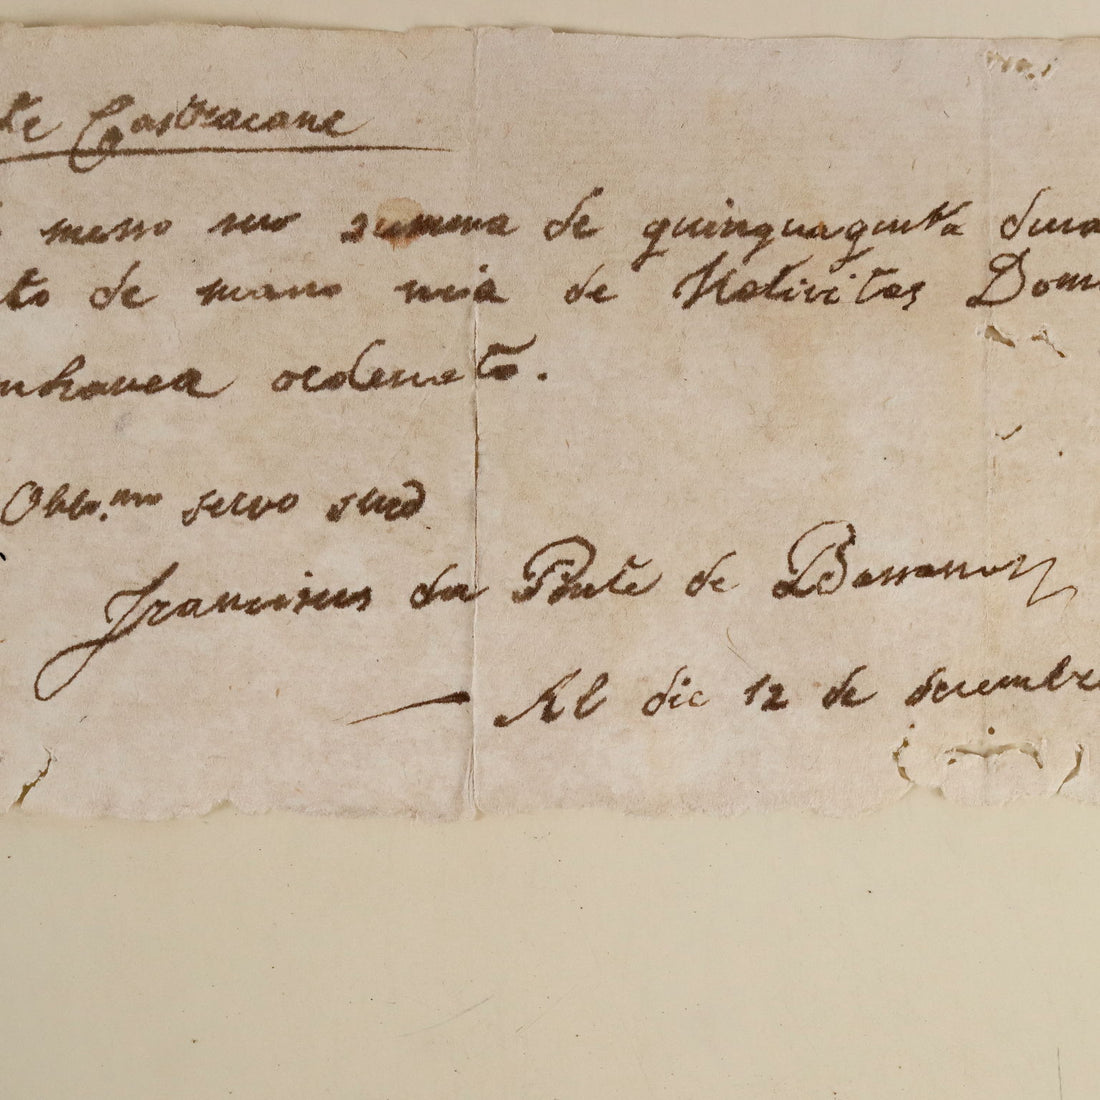 te Castracane
messo suo summa de quinquaginta duca
to de mano mia de Nativitas Dom
nhavea ordenato.
Obbl.mo servo suo
Franciscus da Ponte de Bassano
Al die 12 de decembre